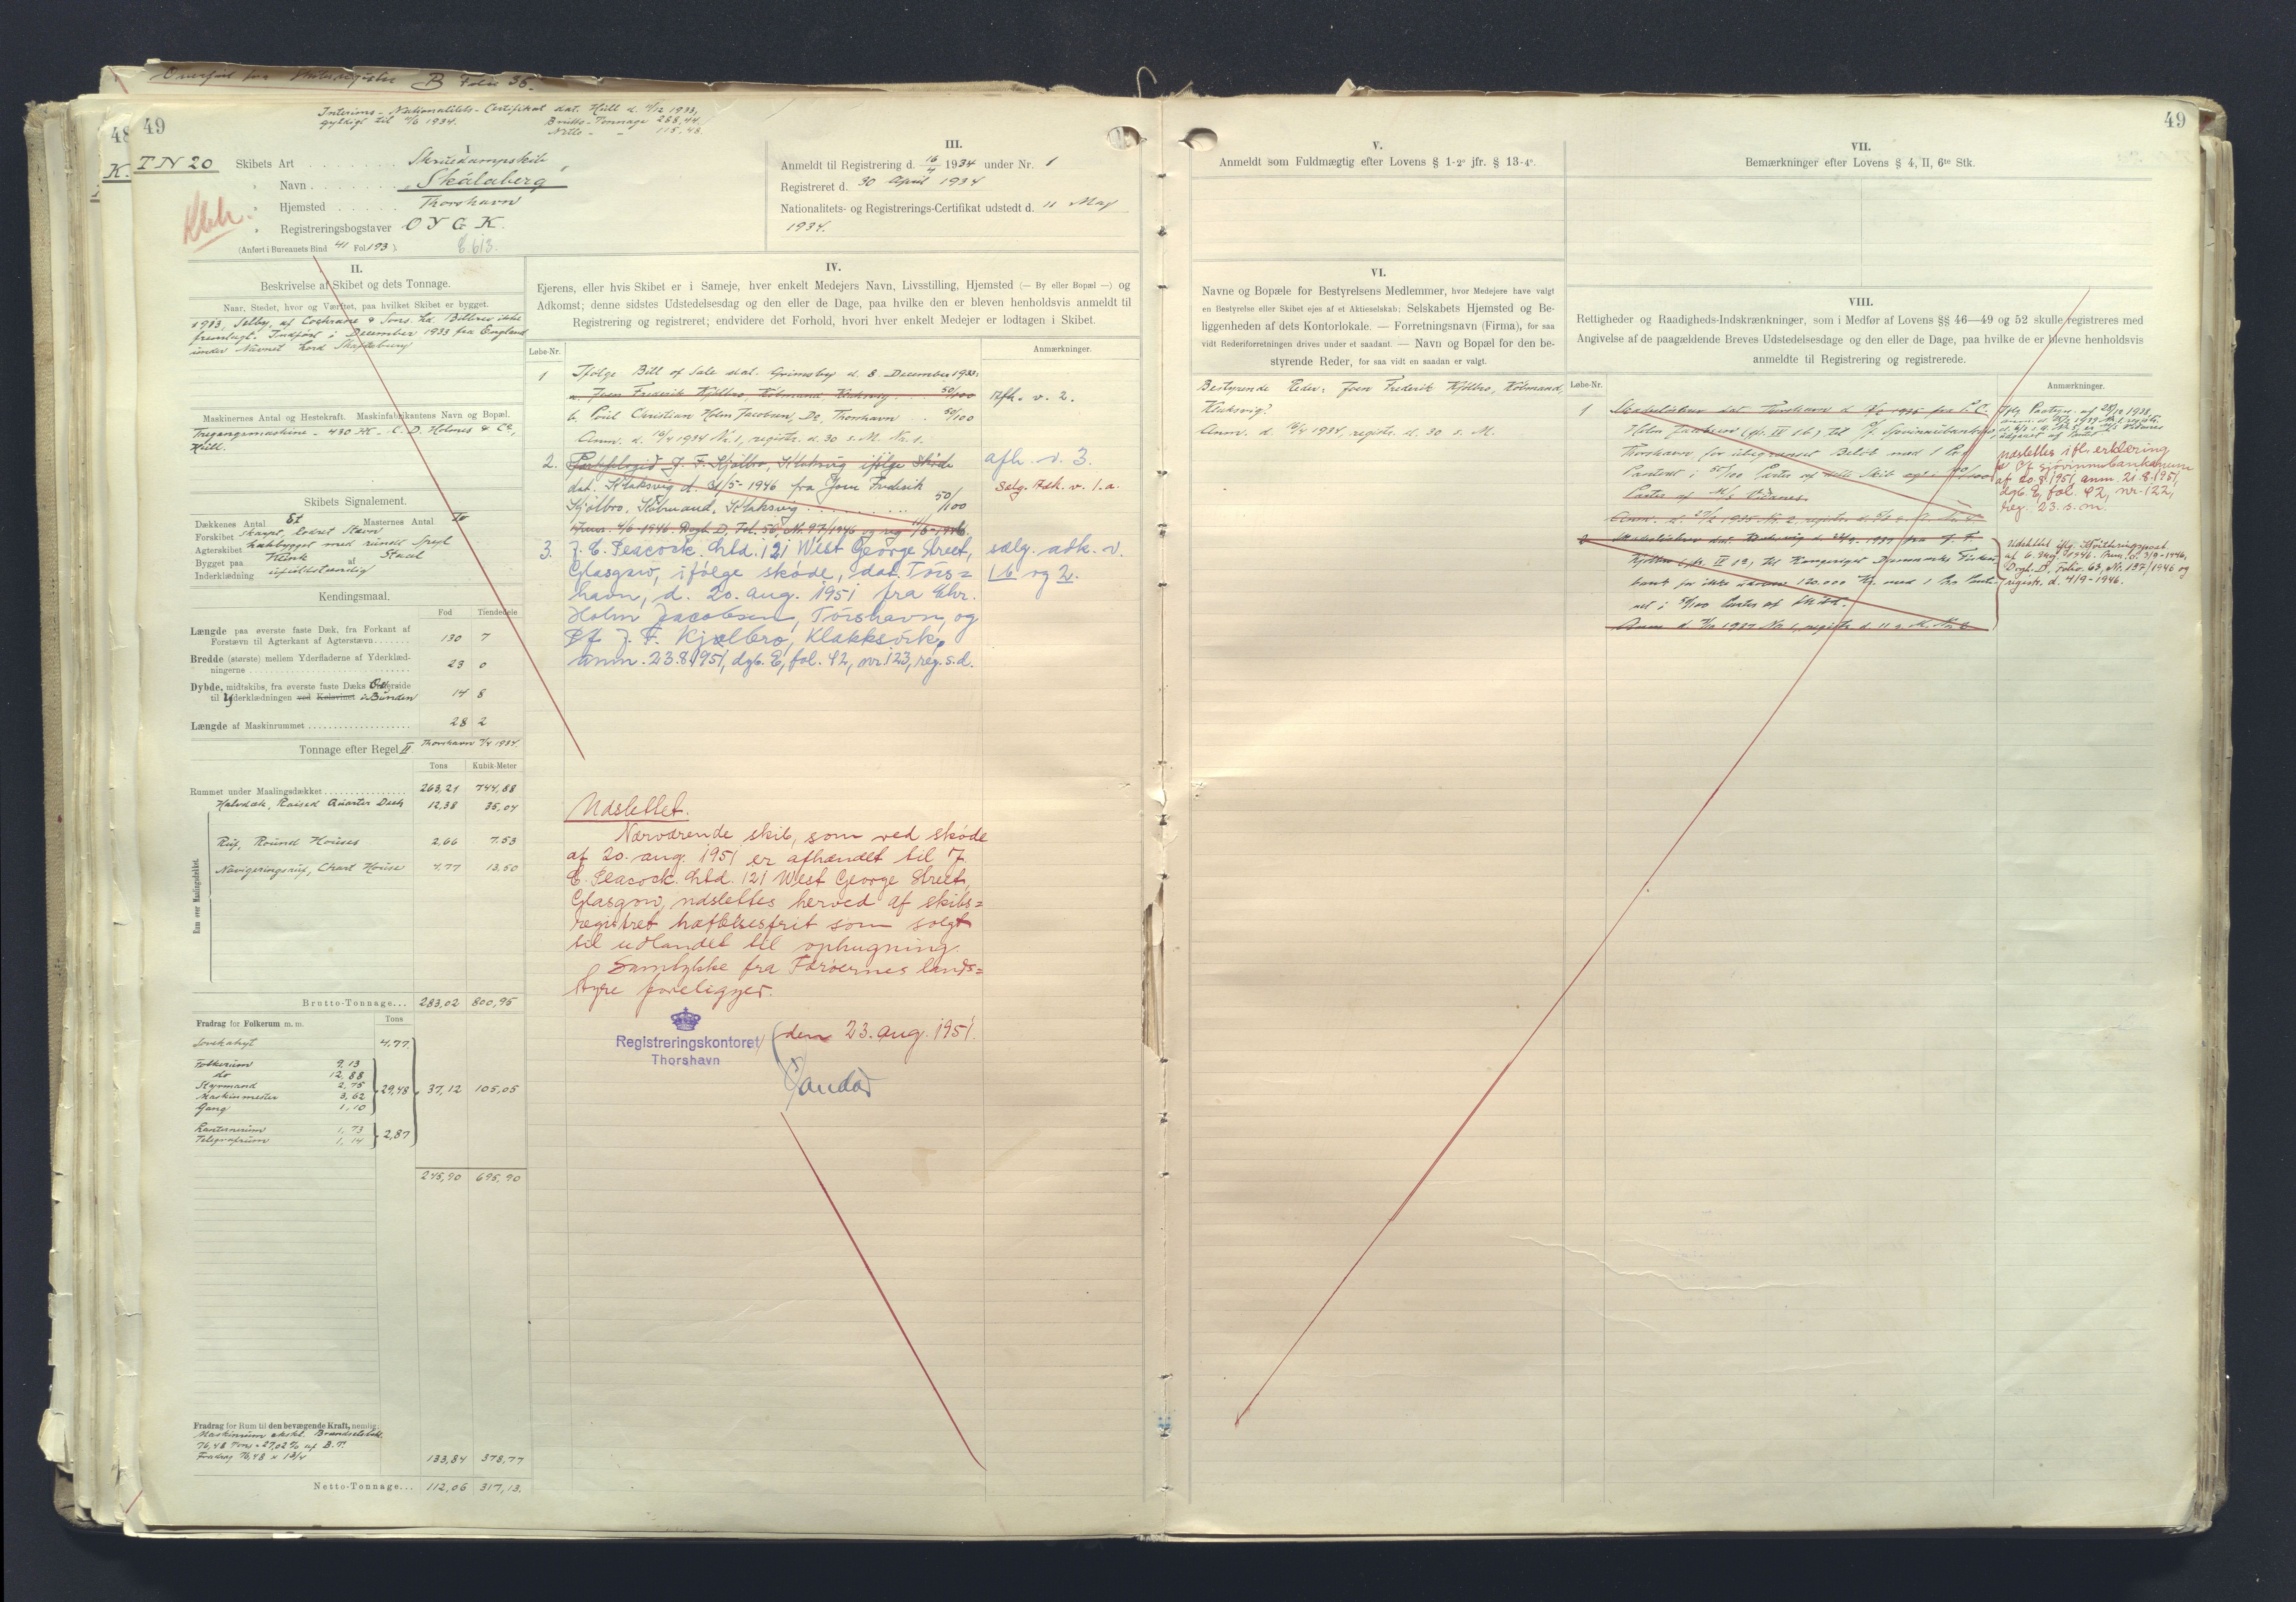 Overført fra Skibsregister B Folio 36.
49
48
K.
Interims-Nationalitets-Certifikat dat. Hull d. 11/12 1933,
gyldigt til 11/6 1934. Brutto-Tonnage 288,44
Netto - - 115,48.
T N 20
I
Skibets Art Skruedampskib
" Navn "Skálaberg"
" Hjemsted Thorshavn
" Registreringsbogstaver O Y G K.
(Anført i Bureauets Bind 41 Fol 193) E 613.
III.
Anmeldt til Registrering d. 16/4 1934 under Nr. 1
Registreret d. 30 April 1934
Nationalitets- og Registrerings-Certifikat udstedt d. 11 Maj
1934.
II.
Beskrivelse af Skibet og dets Tonnage.
Naar, Stedet, hvor og Værftet, paa hvilket Skibet er bygget.
Selby, af Cochrane & Sons Ld. Bilbrev ikke
fremlagt. Indført i December 1933 fra England
under Navnet Lord
Maskinernes Antal og Hestekraft. Maskinfabrikantens Navn og Bopæl.
Tregangsmaskine - 430 HK - C. D. Holmes & Co,
Hull.
Skibets Signalement.
Dækkenes Antal Et Masternes Antal To
Forskibet skarpt, lodret Stævn
Agterskibet hækbygget med rundt Spejl
Bygget paa Klink af Staal
Inderklædning ufuldstændig
Kendingsmaal.
Fod Tiendedele
Længde paa øverste faste Dæk, fra Forkant af
Forstævn til Agterkant af Agterstævn 130 7
Bredde (største) mellem Yderfladerne af Yderklæd-
ningerne 23 0
Dybde, midtskibs, fra øverste faste Dæks Underside
til Yderklædningen ved Kølsvinet i Bunden 14 8
Længde af Maskinrummet 28 2
Tonnage efter Regel II Thorshavn 7/4 1934.
Tons Kubik-Meter
Rummet under Maalingsdækket 263,21 744,88
Halvdæk, Raised Quarter Deck 12,38 35,04
Ruf, Round Houses 2,66 7.53
Navigeringsruf, Chart House 4,77 13,50
Rum over Maalingsdækket.
Brutto-Tonnage... 283,02 800,95
Fradrag for Folkerum m. m. Tons
4,77
Folkerum 9,13
do 12,88
Styrmand 2,75
Maskinmester 3,62
Gang 1,10
29,48 37,12 105,05
Lanternerum 1,73
Telegrafrum 1,14
2,87
245,90 695,90
Fradrag for Rum til den bevægende Kraft, nemlig:
Maskinrum ekskl. Brændselsbeh.
76,48 Tons = 27,02 % af B.T.
Fradrag 76,48 x 1 3/4 133,84 378,77
Netto-Tonnage... 112,06 317,13.
IV.
Ejerens, eller hvis Skibet er i Sameje, hver enkelt Medejers Navn, Livsstilling, Hjemsted (— By eller Bopæl —) og
Adkomst; denne sidstes Udstedelsesdag og den eller de Dage, paa hvilke den er bleven henholdsvis anmeldt til
Registrering og registreret; endvidere det Forhold, hvori hver enkelt Medejer er lodtagen i Skibet.
Løbe-Nr. Anmærkninger.
1 Ifølge Bill of Sale dat. Grimsby d. 8. December 1933:
a. Joen Frederik Kjølbro, Købmand, Klaksvig 50/100 Afh. v. 2.
b. Poul Christian Holm Jacobsen, Do, Thorshavn 50/100
Anm. d. 16/4 1934 Nr. 1, registr. d. 30 s. M. Nr. 1.
2. J. F. Kjølbro, Klaksvig ifølge Skøde afh. v. 3.
dat. Klaksvig d. 31/5-1946 fra Joen Frederik Selg. Adk. v. 1.a.
Kjølbro, Købmand, Klaksvig 50/100
Anm. 4/6-1946. Dagb. D, Fol. 56, Nr. 97/1946 og reg. 11/6-1946.
3. J. E. Peacock. Ltd. 121 West George Street, sælg. adk. v.
Glasgow, ifølge skøde, dat. Tórs= 1b og 2.
havn, d. 20. aug. 1951 fra Chr.
Holm Jacobsen, Tórshavn, og
P/f J. F. Kjølbro, Klakksvík,
anm. 23.8.1951, dgb. E, fol. 42, nr. 123, reg. s.d.
Udslettet.
Nærværende skib, som ved skøde
af 20. aug. 1951 er afhændet til J.
E. Peacock. Ltd. 121 West George Street,
Glasgow, udslettes herved af skibs=
registret hæftelsesfrit som solgt
til udlandet til ophugning.
Samtykke fra Færøernes lands=
styre foreligger.
Registreringskontoret
Thorshavn
den 23. aug. 1951.
V.
Anmeldt som Fuldmægtig efter Lovens § 1-2° jfr. § 13-4°.
VI.
Navne og Bopæle for Bestyrelsens Medlemmer, hvor Medejere have valgt
en Bestyrelse eller Skibet ejes af et Aktieselskab; Selskabets Hjemsted og Be-
liggenheden af dets Kontorlokale. — Forretningsnavn (Firma), for saa
vidt Rederiforretningen drives under et saadant. — Navn og Bopæl for den be-
styrende Reder, for saa vidt en saadan er valgt.
Bestyrende Reder: Joen Frederik Kjølbro, Købmand,
Klaksvig.
Anm. d. 16/4 1934, registr. d. 30 s. M.
49
VII.
Bemærkninger efter Lovens § 4, II, 6te Stk.
VIII.
Rettigheder og Raadigheds-Indskrænkninger, som i Medfør af Lovens §§ 46—49 og 52 skulle registreres med
Angivelse af de paagældende Breves Udstedelsesdage og den eller de Dage, paa hvilke de er blevne henholdsvis
anmeldte til Registrering og registrerede.
Løbe-Nr. Anmærkninger.
1 Skadesløsbrev dat. Thorshavn d. 1935 fra P. C.
Holm Jacobsen (jfr. IV 1 b) til P/f Sjóvinnubankin,
Thorshavn for ubegrænset Beløb med 1 Pr.
Panteret i 50/100 Parter af dette Skib
Parter af
2 Skadesløsbrev dat. 1937 fra J. F.
Kjølbro (jfr. IV 1a) til Kongeriget Danmarks Fiskeri-
bank for ikke 120.000 Kr. med 1 Pr. Pante-
ret i 50/100 Parter af Skibet.
udslettes ifl. erklæring
fa P/f sjóvinnubankanum
af 20.8.1951, anm. 21.8.1951,
dgb. E, fol. 42, nr. 122,
reg. 23. s. m.
Udslettet iflg. Kvitteringspaat.
af 6. 1946. Anm. d. 3/9-1946,
Dagb. D, Folio 63, Nr. 137/1946 og
registr. d. 4/9-1946.